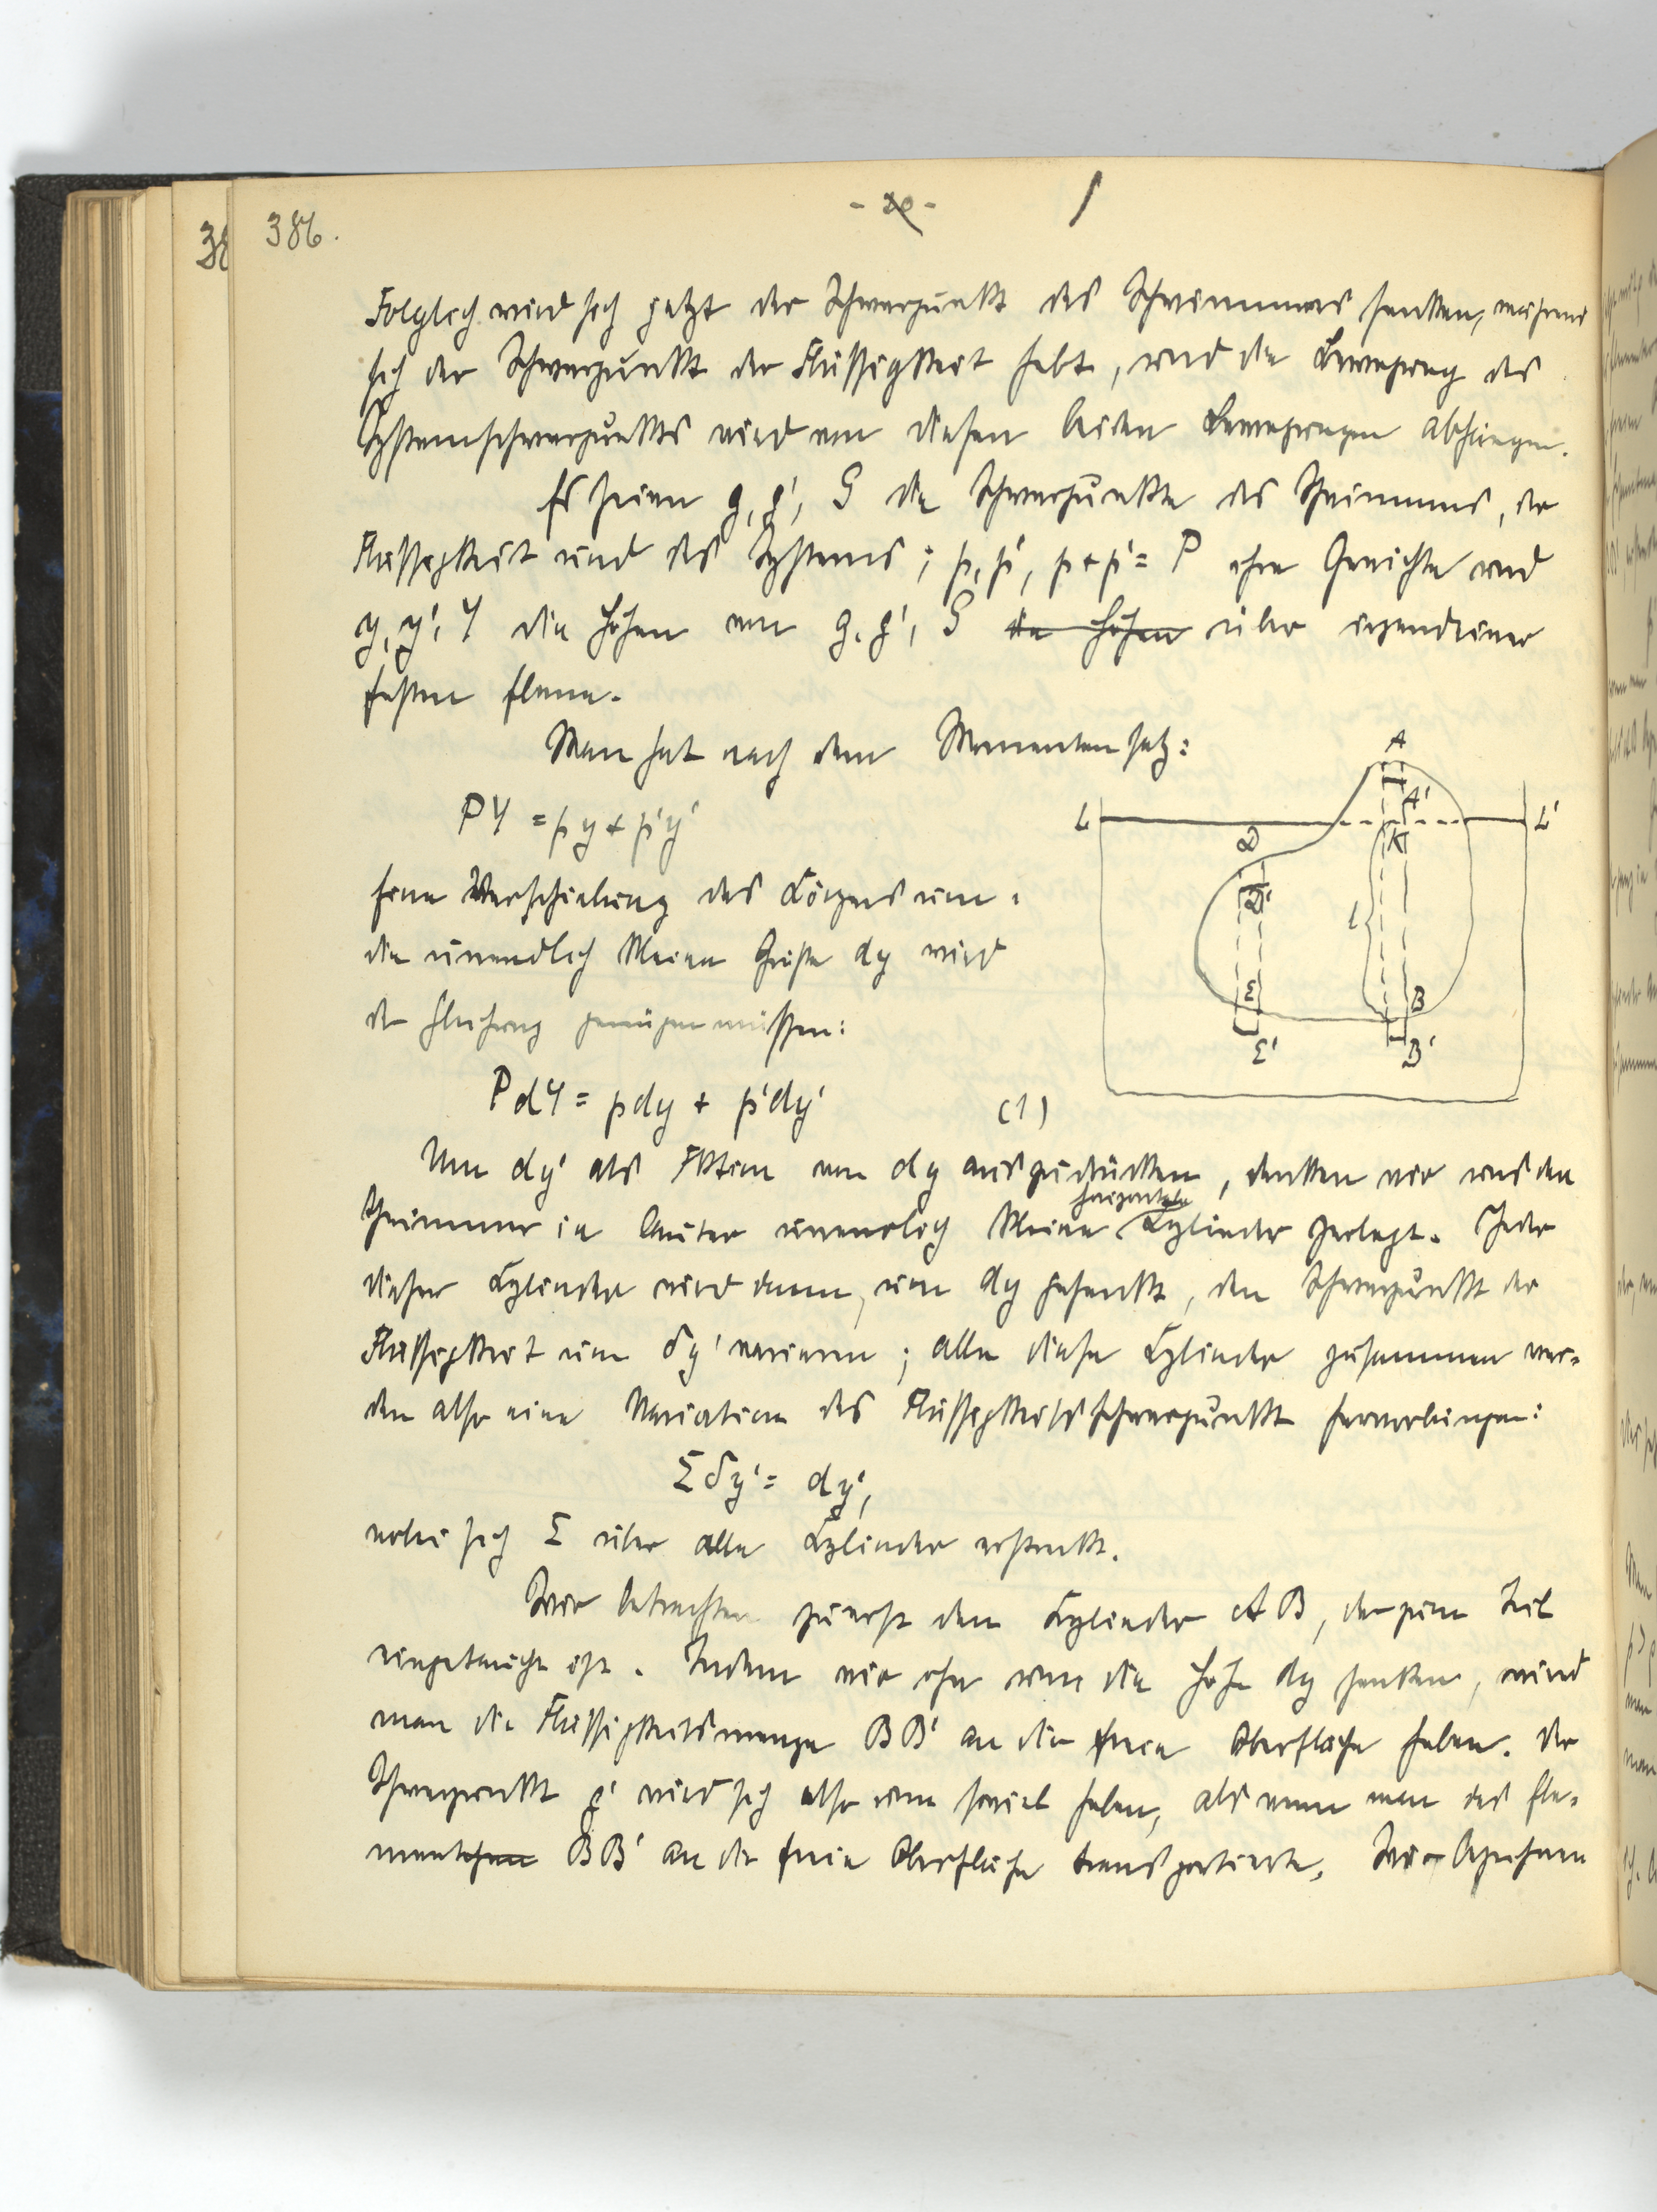 386.
- 20 -
38
Folglich wird sich jetzt der Schwerpunkt des Schwimmers senken, während
sich der Schwerpunkt der Flüssigkeit hebt, und die Bewegung des
Systemschwerpunktes wird von diesen beiden Bewegungen abhängen.
Es seien g, g', G die Schwerpunkte des Schwimmers, der
Flüssigkeit und des Systems; p, p', p+p'= P ihre Gewichte und
y, y', Y die Höhen von g, g', G die Höhen über irgendeiner
festen Ebene.
Man hat nach dem Momentensatz:
PY = py + p'y'
Eine Verschiebung des Körpers um
die unendlich kleine Grösse dy wird
der Gleichung genügen müssen:
PdY = pdy + p'dy' (1)
A
A'
L
L'
D
K
D'
l
E
B
E'
B'
Um dy' als Fktion von dy auszudrücken, denken wir uns den
horizontale
Schwimmer in lauter unendlich kleine Zylinder zerlegt. Jeder
dieser Zylinder wird dann, um dy gesenkt, den Schwerpunkt der
Flüssigkeit um δy' variieren; alle diese Zylinder zusammen wer-
den also eine Variation des Flüssigkeitsschwerpunkt hervorbringen:
Σδy' = dy',
wobei sich Σ über alle Zylinder erstreckt.
Wir betrachten zuerst den Zylinder AB, der zum Teil
eingetaucht ist. Indem wir ihn um die Höhe dy senken, wird
man die Flüssigkeitsmenge BB' an die freie Oberfläche heben. Der
Schwerpunkt g' wird sich also um soviel heben, als wenn man das Ele-
ment BB' an die freie Oberfläche transportierte. Wir bezeichnen